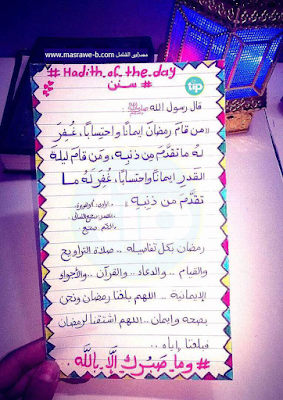 مصراوى الشامل www.masrawe-b.com
# Hadith of the day
# سنن
tip
قال رسول الله ﷺ:
«من قامَ رمضانَ إيمانًا واحتسابًا، غُفِرَ
لَهُ ما تقدَّمَ مِن ذنبِهِ، ومَن قامَ ليلةَ
القدرِ إيمانًا واحتسابًا، غُفِرَ لَهُ ما
تقدَّمَ من ذنبِهِ»
رمضان بكل تفاصيله .. صلاة التراويح
والقيام .. والدعاء .. والقرآن .. والأجواء
الإيمانية .. اللهم بلغنا رمضان ونحن
بصحه وإيمان .. اللهم اشتقنا لرمضان
فبلغنا إياه ..
# وما صَبْرُكَ إِلَّا بِاللَّه ..